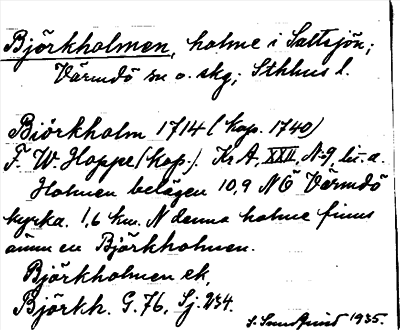 Björkholmen, holme i Saltsjön;
Värmdö sn o. skg; Sthlms l.
Biörkholm 1714 (kop. 1740)
F. W. Hoppe (kop.). Kr A, XXII, N-9, lit. a.
Holmen belägen 10,9 NÖ Värmdö
kyrka. 1,6 km. N denna holme finns
ännu en Björkholmen.
Björkholmen ek,
Björkh. G. 76, Sj. 234.
S. Sundquist 1935.